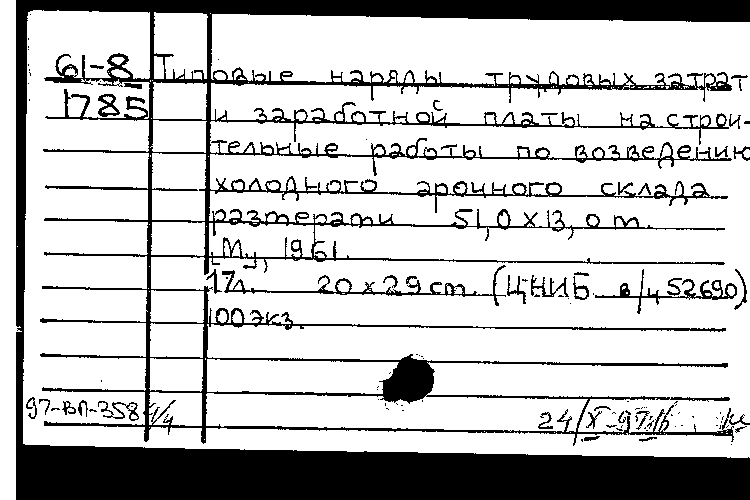 61-8 Типовые наряды трудовых затрат
1785 и заработной платы на строи-
тельные работы по возведению
холодного арочного склада
размерами 51,0 х 13,0 m.
[М.],
1961.
17л. 20 x 29 cm. (ЦНИБ в/ч 52690)
100 экз.
97-ВЛ-358 24/X-97